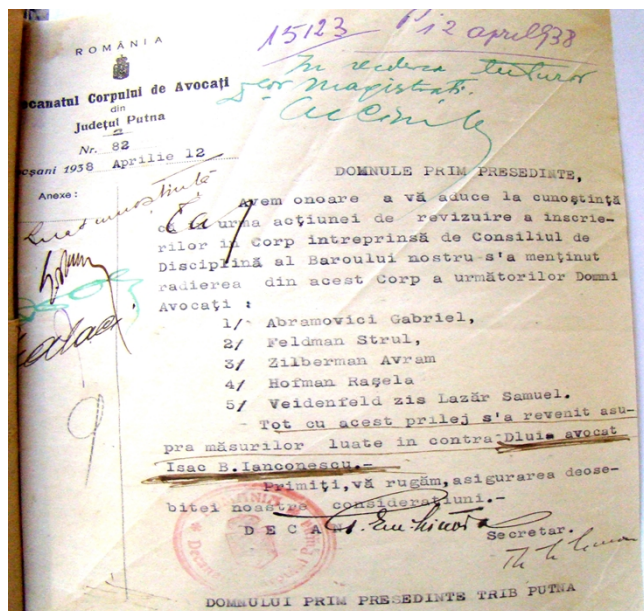 ROMÂNIA
Decanatul Corpului de Avocați
din
Județul Putna
Nr. 82
Focșani 1938 Aprilie 12
Anexe :
15123 12 april 938
In vederea tuturor
magistrați.
Luat cunoștință
DOMNULE PRIM PRESEDINTE,
Avem onoare a vă aduce la cunoștință
că in urma acțiunei de revizuire a inscrie-
rilor in Corp intreprinsă de Consiliul de
Disciplină al Baroului nostru s'a menținut
radierea din acest Corp a următorilor Domni
Avocați :
1/ Abramovici Gabriel,
2/ Feldman Strul,
3/ Zilberman Avram
4/ Hofman Rașela
5/ Veidenfeld zis Lazăr Samuel.
Tot cu acest prilej s'a revenit asu-
pra măsurilor luate in contra Dlui avocat
Isac B.Ianconescu.-
Primiți,vă rugăm,asigurarea deose-
bitei noastre considerațiuni.-
DECAN,
Secretar.
DOMNULUI PRIM PRESEDINTE TRIB PUTNA